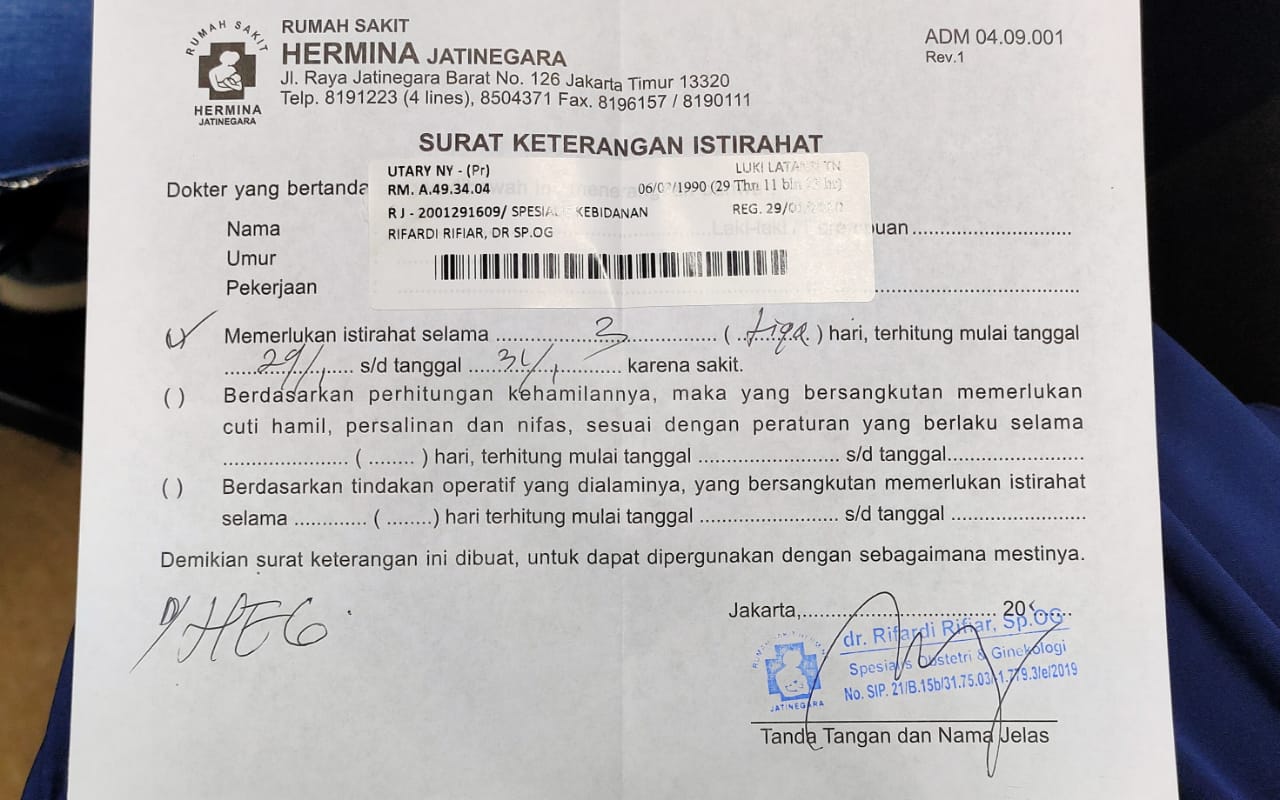 RUMAH SAKIT
HERMINA
JATINEGARA
RUMAH SAKIT
HERMINA JATINEGARA
Jl. Raya Jatinegara Barat No. 126 Jakarta Timur 13320
Telp. 8191223 (4 lines), 8504371 Fax. 8196157 / 8190111
ADM 04.09.001
Rev.1
SURAT KETERANGAN ISTIRAHAT
Dokter yang bertanda
UTARY NY - (Pr) LUKI
RM. A.49.34.04 /1990 (29 Thn 11 bln
RJ - 2001291609/ SPESIAL KEBIDANAN REG. 29/
RIFARDI RIFIAR, DR SP.OG
Nama uan
Umur
Pekerjaan
Memerlukan istirahat selama 3 ( tiga ) hari, terhitung mulai tanggal
29/1 s/d tanggal 31/1 karena sakit.
( ) Berdasarkan perhitungan kehamilannya, maka yang bersangkutan memerlukan
cuti hamil, persalinan dan nifas, sesuai dengan peraturan yang berlaku selama
...................... ( ........ ) hari, terhitung mulai tanggal ......................... s/d tanggal........................
( ) Berdasarkan tindakan operatif yang dialaminya, yang bersangkutan memerlukan istirahat
selama ............. ( ........) hari terhitung mulai tanggal ......................... s/d tanggal ........................
Demikian surat keterangan ini dibuat, untuk dapat dipergunakan dengan sebagaimana mestinya.
HEG
Jakarta,.................................. 20
dr. Rifardi Rifiar, Sp.OG
Spesialis Obstetri & Ginekologi
No. SIP. 21/B.15b/31.75.03/-1.779.3/e/2019
JATINEGARA
Tanda Tangan dan Nama Jelas